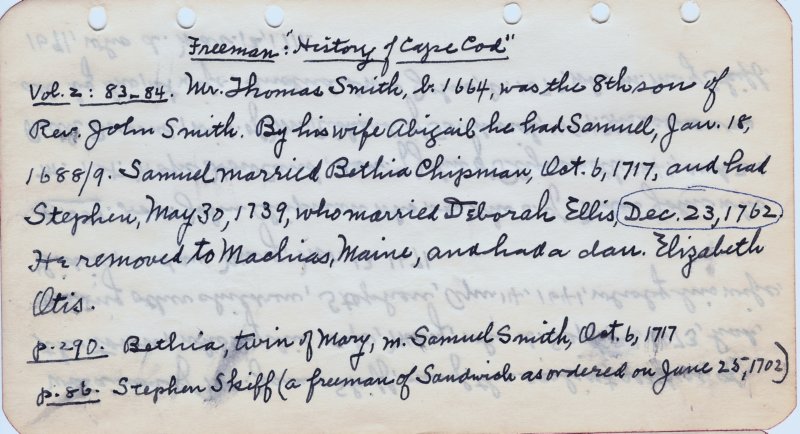 Freeman: "History of Cape Cod"
Vol. 2: 83-84. Mr. Thomas Smith, b. 1664, was the 8th son of
Rev. John Smith. By his wife Abigail he had Samuel, Jan. 18,
1688/9. Samuel married Bethia Chipman, Oct. 6, 1717, and had
Stephen, May 30, 1739, who married Deborah Ellis, Dec. 23, 1762.
He removed to Machias, Maine, and had a dau. Elizabeth
Otis.
p. 290. Bethia, twin of Mary, m. Samuel Smith, Oct. 6, 1717
p. 86. Stephen Skiff (a freeman of Sandwich as ordered on June 25, 1702)